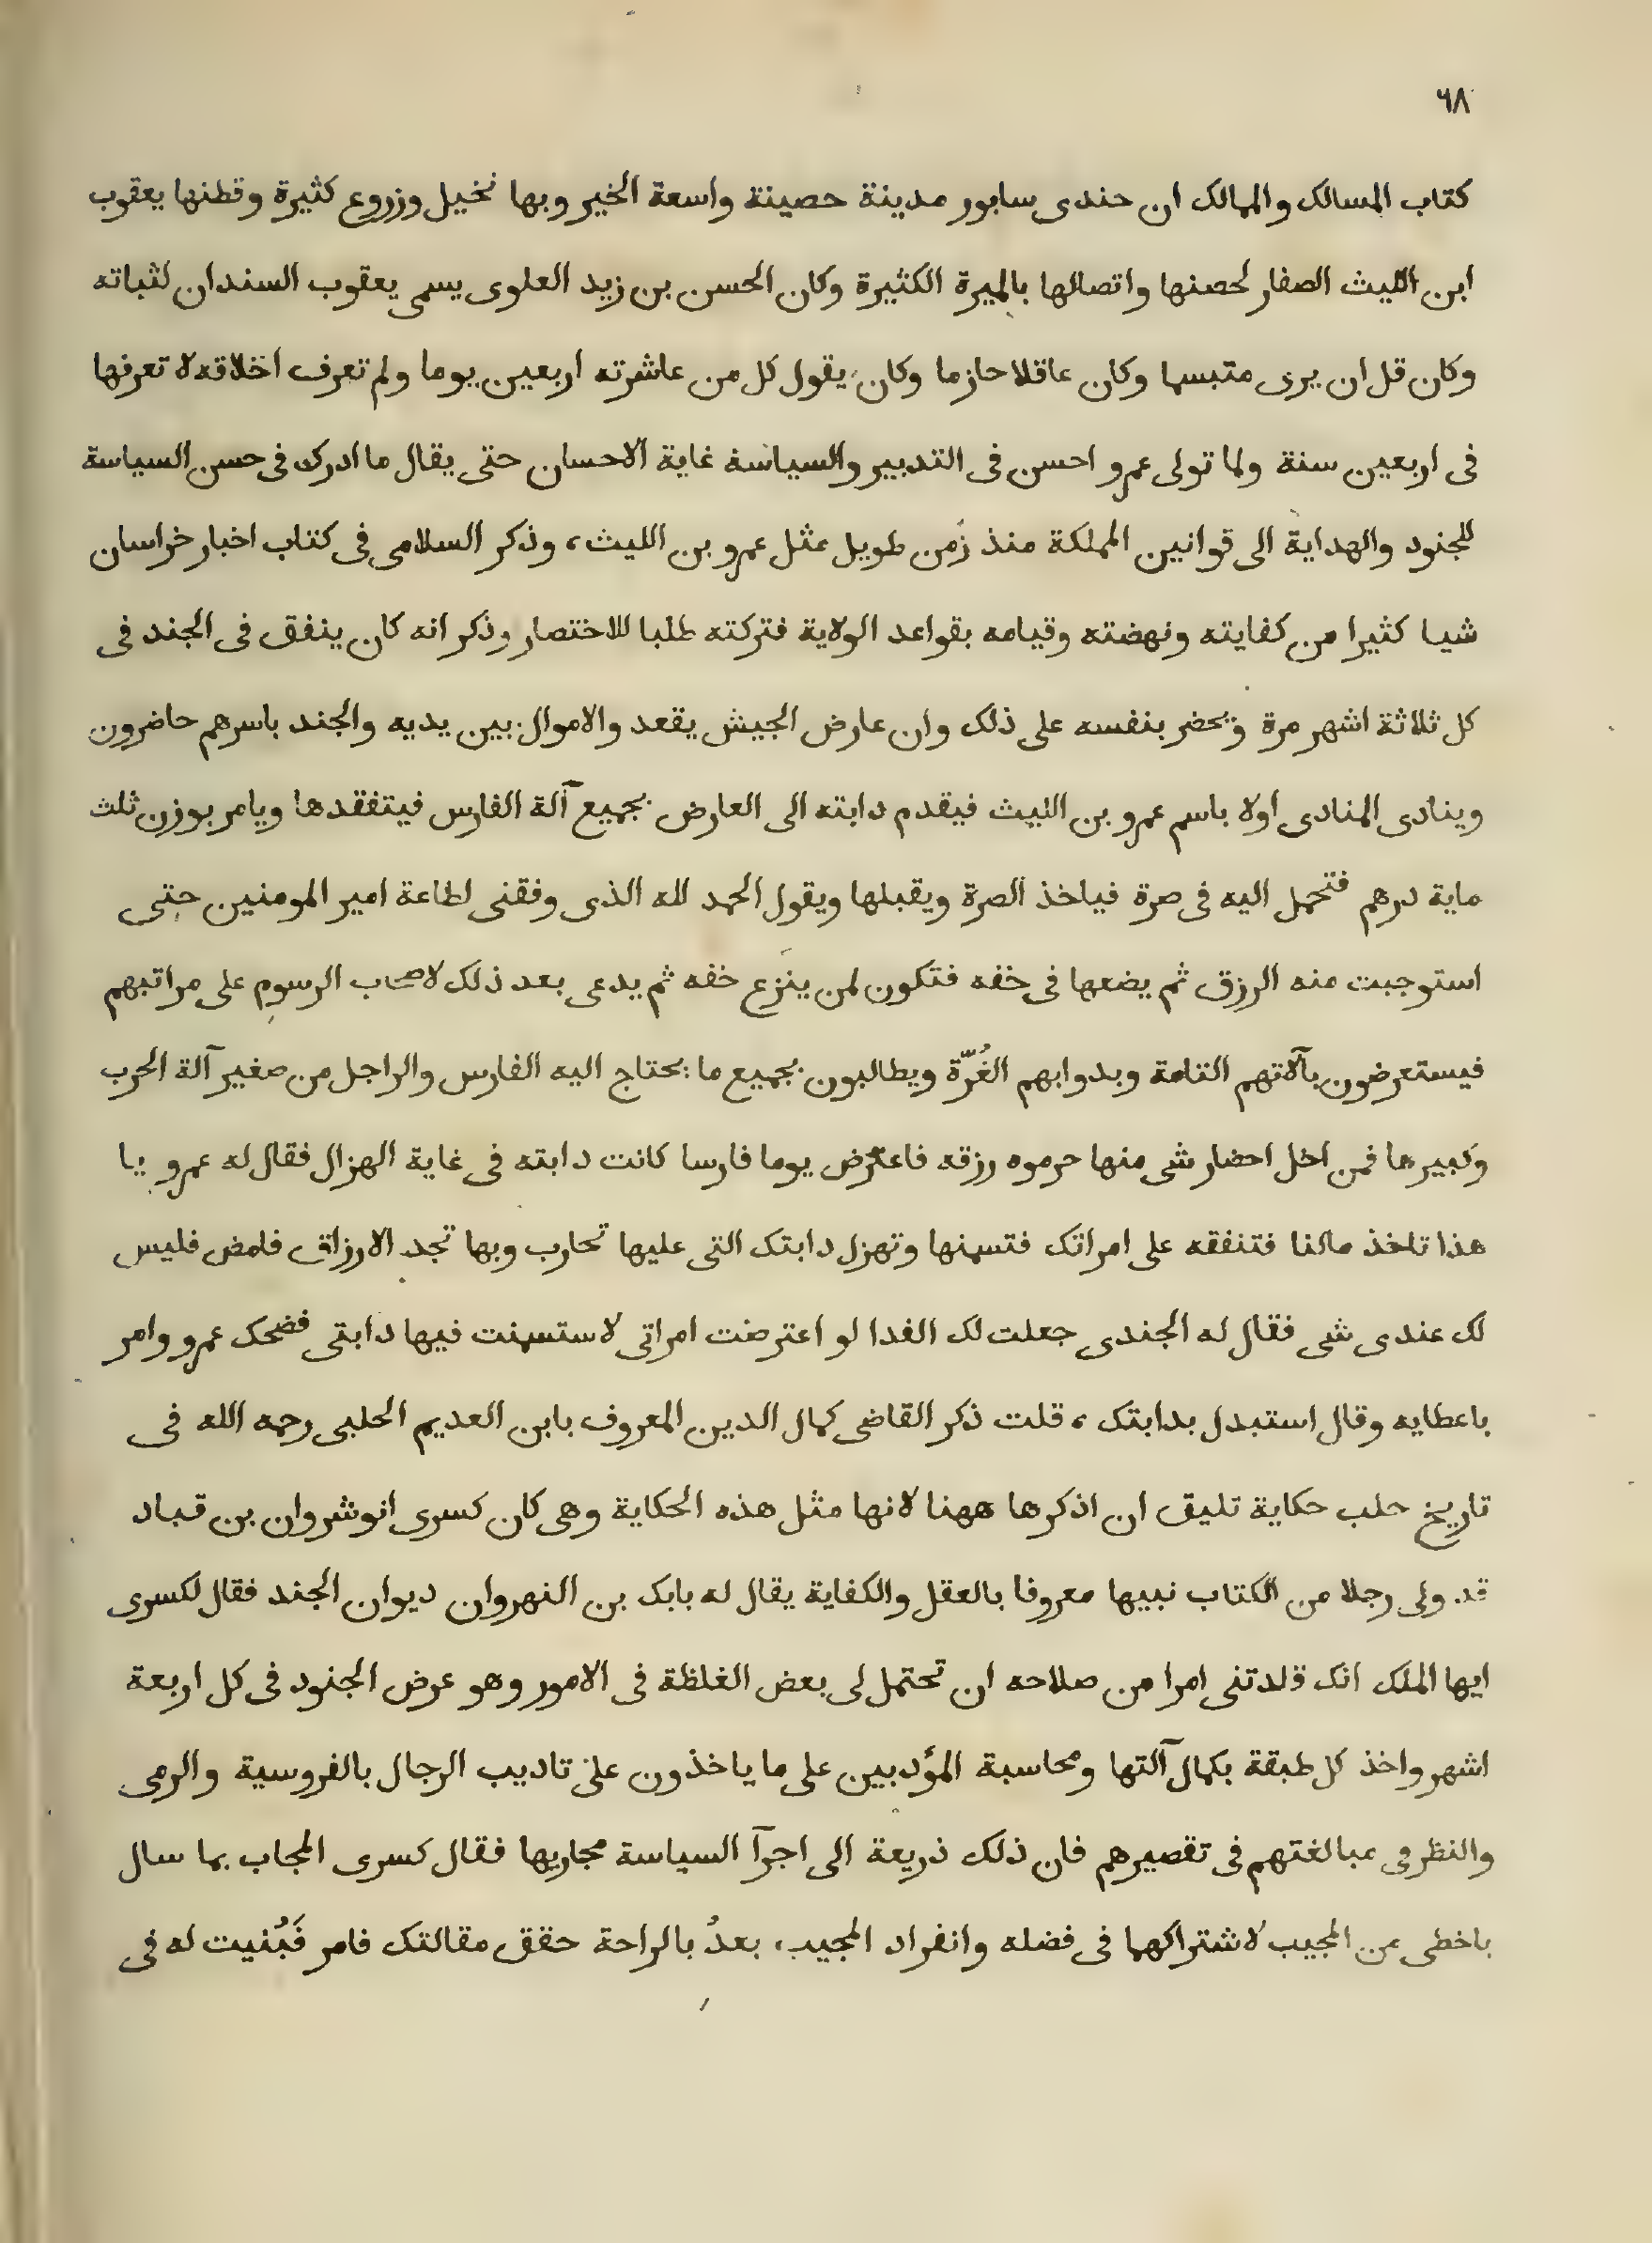 ٦٨
كتاب المسالك والممالك ان حندى سابور مدينة حصينة واسعة الخير وبها نخيل وزروع كثيرة وقطنها يعقوب
ابن الليث الصفار لحصنها واتصالها بالميرة الكثيرة وكان الحسن بن زيد العلوى يسمى يعقوب السندان لثباته
وكان قل ان يرى متبسما وكان عاقلا حازما وكان يقول كل من عاشرته اربعين يوما ولم تعرف اخلاقه لا تعرفها
فى اربعين سنة ولما تولى عمرو احسن فى التدبير والسياسة غاية الاحسان حتى يقال ما ادرك فى حسن السياسة
للجنود والهداية الى قوانين المملكة منذ زمن طويل مثل عمرو بن الليث، وذكر السلامى فى كتاب اخبار خراسان
شيا كثيرا من كفايته ونهضته وقيامه بقواعد الولاية فتركته طلبا للاختصار وذكر انه كان ينفق فى الجند فى
كل ثلاثة اشهر مرة ويحضر بنفسه على ذلك وان عارض الجيش يقعد والاموال بين يديه والجند باسرهم حاضرون
وينادى المنادى اولا باسم عمرو بن الليث فيقدم دابته الى العارض بجميع آلة الفارس فيتفقدها ويامر بوزن ثلث
ماية درهم فتحمل اليه فى صرة فياخذ الصرة ويقبلها ويقول الحمد لله الذى وفقنى لطاعة امير المومنين حتى
استوجبت منه الرزق ثم يضعها فى خفه فتكون لمن ينزع خفه ثم يدعى بعد ذلك لاصحاب الرسوم على مراتبهم
فيستعرضون بآلاتهم التامة وبدوابهم الغُرّة ويطالبون بجميع ما يحتاج اليه الفارس والراجل من صغير آلة الحرب
وكبيرها فمن اخل احضار شى منها حرموه رزقه فاعترض يوما فارسا كانت دابته فى غاية الهزال فقال له عمرو يا
هذا تاخذ مالنا فتنفقه على امراتك فتسمنها وتهزل دابتك التى عليها تحارب وبها تجد الارزاق فامض فليس
لك عندى شى فقال له الجندى جعلت لك الفدا لو اعترضت امراتى لاستسمنت فيها دابتى فضحك عمرو وامر
باعطايه وقال استبدل بدابتك، قلت ذكر القاضى كمال الدين المعروف بابن العديم الحلبى رحمه الله فى
تاريخ حلب حكاية تليق ان اذكرها ههنا لانها مثل هذه الحكاية وهى كان كسرى انوشروان بن قباد
قد ولى رجلا من الكتاب نبيها معروفا بالعقل والكفاية يقال له بابك بن النهروان ديوان الجند فقال لكسرى
ايها الملك انك قلدتنى امرا من صلاحه ان تحتمل لى بعض الغلظة فى الامور وهو عرض الجنود فى كل اربعة
اشهر واخذ كل طبقة بكمال آلتها ومحاسبة المؤدبين على ما ياخذون على تاديب الرجال بالفروسية والرمى
والنظر فى مبالغتهم فى تقصيرهم فان ذلك ذريعة الى اجرآ السياسة مجاريها فقال كسرى المجاب بما سال
باخطى من المجيب لاشتراكهما فى فضله وانفراد المجيب، بعدُ بالراحة حقق مقالتك فامر فَبُنيت له فى